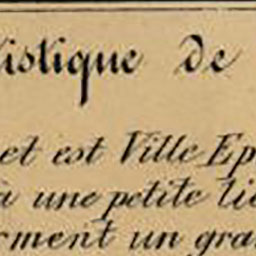 istique de
et est Ville Ep
à une petite lie
rment un gra